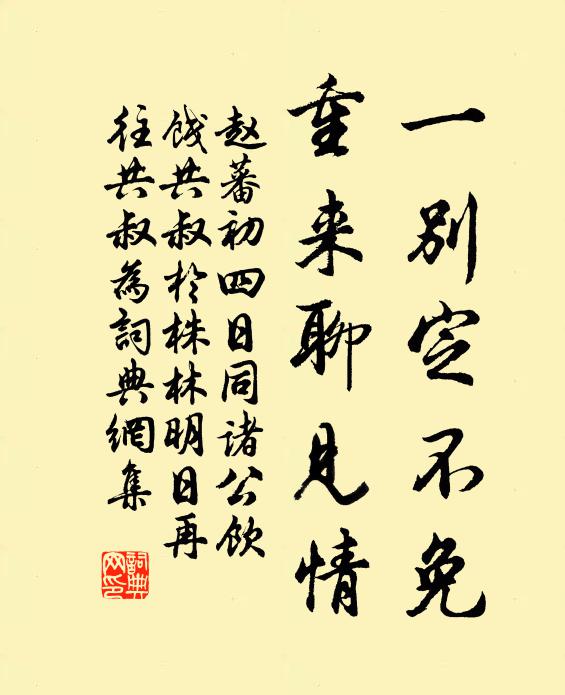 一别定不免
重来聊见情
赵蕃初四日同诸公饮
饯共叔於株林明日再
往共叔為詞典網集
詞典网印